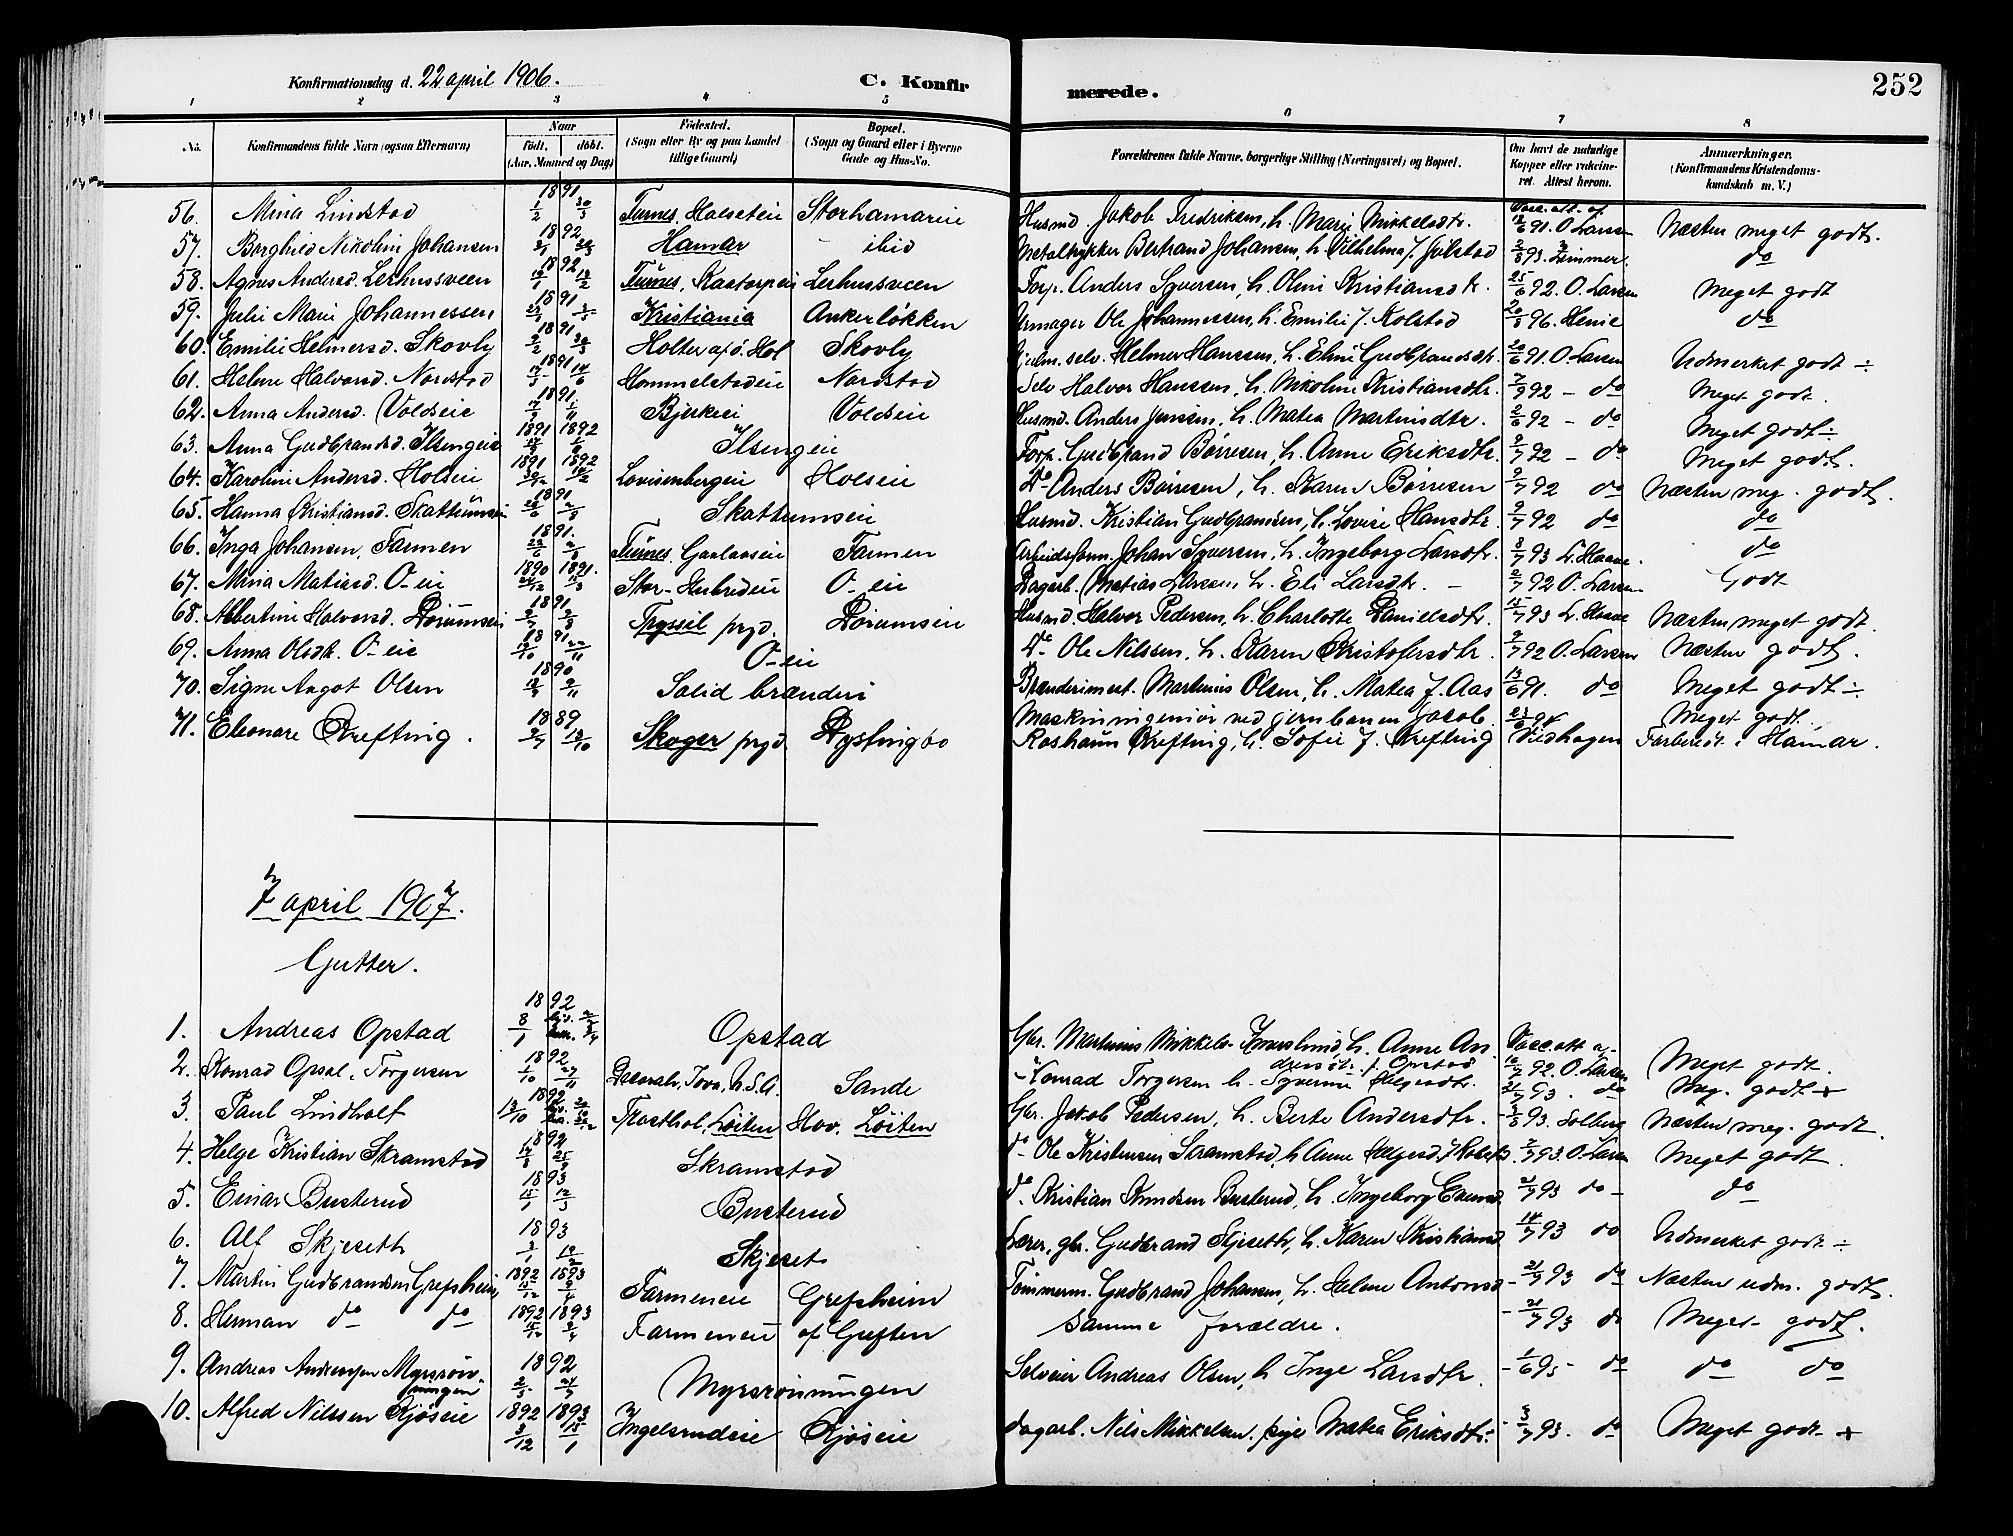 Konfirmationsdag d. 22 april 1906. C. Konfirmerede. 252
1 2 3 4 5 6 7 8
No. Konfirmandens fulde Navn (ogsaa Efternavn) Naar født. døbt. (Aar, Maaned og Dag) Fødested. (Sogn eller By og paa Landet tillige Gaard) Bopæl. (Sogn og Gaard eller i Byerne Gade og Hus-No. Forældrenes fulde Navne, borgerlige Stilling (Næringsvei) og Bopæl. Om havt de naturlige Kopper eller vaccineret. Attest herom. Anmærkninger. (Konfirmandens Kristendomskundskab m. V.)
56. Mina Lindstad 1891 1/2 30/3 Furnes, Holseteie Storhamareie Husmd. Jakob Fredriksen, h. Marie Mikkelsdtr. Vacc. att. af 91. O. Larsen Næsten meget godt.
57. Borghild Nikoline Johansen 1892 Hamar ibid Metaltrykker Bertrand Johansen, h. Vilhelmine f. Jølstad 93. Zimmer. do
58. Agnes Andersd. Lerhussveen 1892 Furnes, Lerhussveen Torp. Anders Syversen, h. Oline Kristiansdtr. 25/6 92. O. Larsen Meget godt
59. Julie Marie Johannessen 1891 Kristiania Ankerløkken Urmager Ole Johannessen, h. Emilie f. Kolstad 96. Henie do
60. Emilie Helmersd. Skovly 1891 2/2 30/3 Holter af ø. Hol Skovly selv. Helmer Hanssen, h. Eline Gudbrandsdtr. 91. O. Larsen Udmerket godt ÷
61. Helene Halvorsd. Nordstad 1891 Hommelstadeie Nordstad Selv Halvor Hanssen, h. Nikoline Kristiansdtr. 92 - do Meget godt.
62. Anna Andersd. Voldeie 1891 Bjerkeei Voldeie Husmd. Anders Jenssen, h. Matea Martinsdtr. 2/6 92 - do Meget godt ÷
63. Anna Gudbrandsd. Ilsengeie 1891 1892 Ilsengeie Gudbrand Børresen, h. Anne Eriksdtr. 92 - do Meget godt.
64. Karoline Andersd. Holseie 1891 1892 Lovisenbergeie Holseie Do Anders Børresen, h. Karen Børresen 92 do Næsten meg. godt.
65. Hanna Kristiansd. Skattumseie 1891 Skattumseie Husmd. Kristian Gudbrandsen, h. Lovise Hansdtr. 92 do do
66. Inga Johansen, Farmen 1891. Furnes Gaarlaaseie Farmen Arbeidsform. Johan Syversen, h. Ingeborg Larsdtr. 8/7 93 L. Haave. do
67. Mina Matiasd. O-eie 1890 1891. Stor-Hubredeie O-eie Dagarb. Matias Larssen, h. Eli Larsdtr. - 92 O. Larsen Godt
68. Albertine Halvorsd. Dørumseie 1891 Trysil prgd. Dørumseie Husmd. Halvor Pedersen, h. Charlotte Danielsdtr. 93 L. Haave Næsten meget godt.
69. Anna Olsdtr. O-eie 1891 O-eie Do Ole Nilssen, h. Karen Kristofersdtr. 92 O. Larsen Næsten godt.
70. Signe Angot Olsen 1890 Solid brænderi Brænderimest. Martinius Olsen, h. Matea f. Aas 13/6 91. do Meget godt ÷
71. Eleonare Krefting. 1889 12/10 Skoger prgd. Dystingbo Maskiningeniør ved jernbanen Jacob Rashaun Krefting, h. Sofie f. Krefting 94 Vidshagen Meget godt. Forberedt i Hamar.
7 april 1907.
Gutter.
1. Andreas Opstad 1892 8/1 Opstad Gbr. Martinius Mikkels. Imerslund, h. Anne Andersdtr. f. Opstad Vacc. att af 92. O. Larsen Meget godt.
2. Konrad Opsal, Torgersen 1892 Decorah, Iova, U.S.A. Sande - Konrad Torgersen h. Syverine Helgesdtr. 21/7 93. do Meg. godt +
3. Paul Lindholt 1892 13/10 Trosthol, Løiten Hov. Løiten Gbr. Jakob Pedersen, h. Berte Andersdtr. 93. Solberg Næsten meg. godt.
4. Helge Kristian Skramstad 1892 Skramstad do Ole Kristensen Skramstad, h Anne Helgesd. 93. O. Larsen Meget godt.
5. Einar Busterud 1893 Busterud do. Kristian Knudsen Busterud, h. Ingeborg 21/7 93 do - do
6. Alf Skjeseth 1893 Skjeset Lærer, gbr. Gudbrand Skjeseth, h. Karen Kristiansd 14/7 93 do Udmerket godt ÷
7. Martin Gudbrandsen Grefsheim 1892 1893 Farmeneie Grefsheim Tømmerm. Gudbrand Johansen, h. Helene Antonsd - 21/7 93 do Næsten udm. godt.
8. Herman do do 1892 1893 Farmeneie af Greften Samme forældre. - 21/7 93 do Meget godt.
9. Andreas Andreassen Myrsrønningen 1892 Myrsrønningen Selveier Andreas Olsen, h Inge Larsdtr. - 1/6 95 - do do do
10. Alfred Nilssen Kjøseie 1892 1893 3/12 15/1 Ingelsrudeie Kjøseie Dagarb. Nils Mikkelsen, pige Matea Eriksdtr. - 93. do Meget godt +